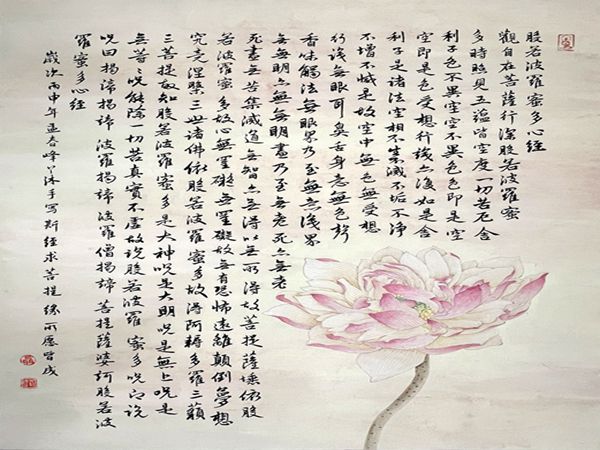 般若波羅蜜多心經
觀自在菩薩行深般若波羅蜜
多時照見五蘊皆空度一切苦厄舍
利子色不異空空不異色色即是空
空即是色受想行識亦復如是舍
利子是諸法空相不生不滅不垢不淨
不增不減是故空中無色無受想
行識無眼耳鼻舌身意無色聲
香味觸法無眼界乃至無意識界
無無明亦無無明盡乃至無老死亦無老
死盡無苦集滅道無智亦無得以無所得故菩提薩埵依般
若波羅蜜多故心無罣礙無罣礙故無有恐怖遠離顛倒夢想
究竟涅槃三世諸佛依般若波羅蜜多故得阿耨多羅三藐
三菩提故知般若波羅蜜多是大神咒是大明咒是無上咒是
無等等咒能除一切苦真實不虛故說般若波羅蜜多咒即說
咒曰揭諦揭諦波羅揭諦波羅僧揭諦菩提薩婆訶般若波
羅蜜多心經
歲次丙申年孟春峰沐手寫斯經求菩提緣所愿皆成